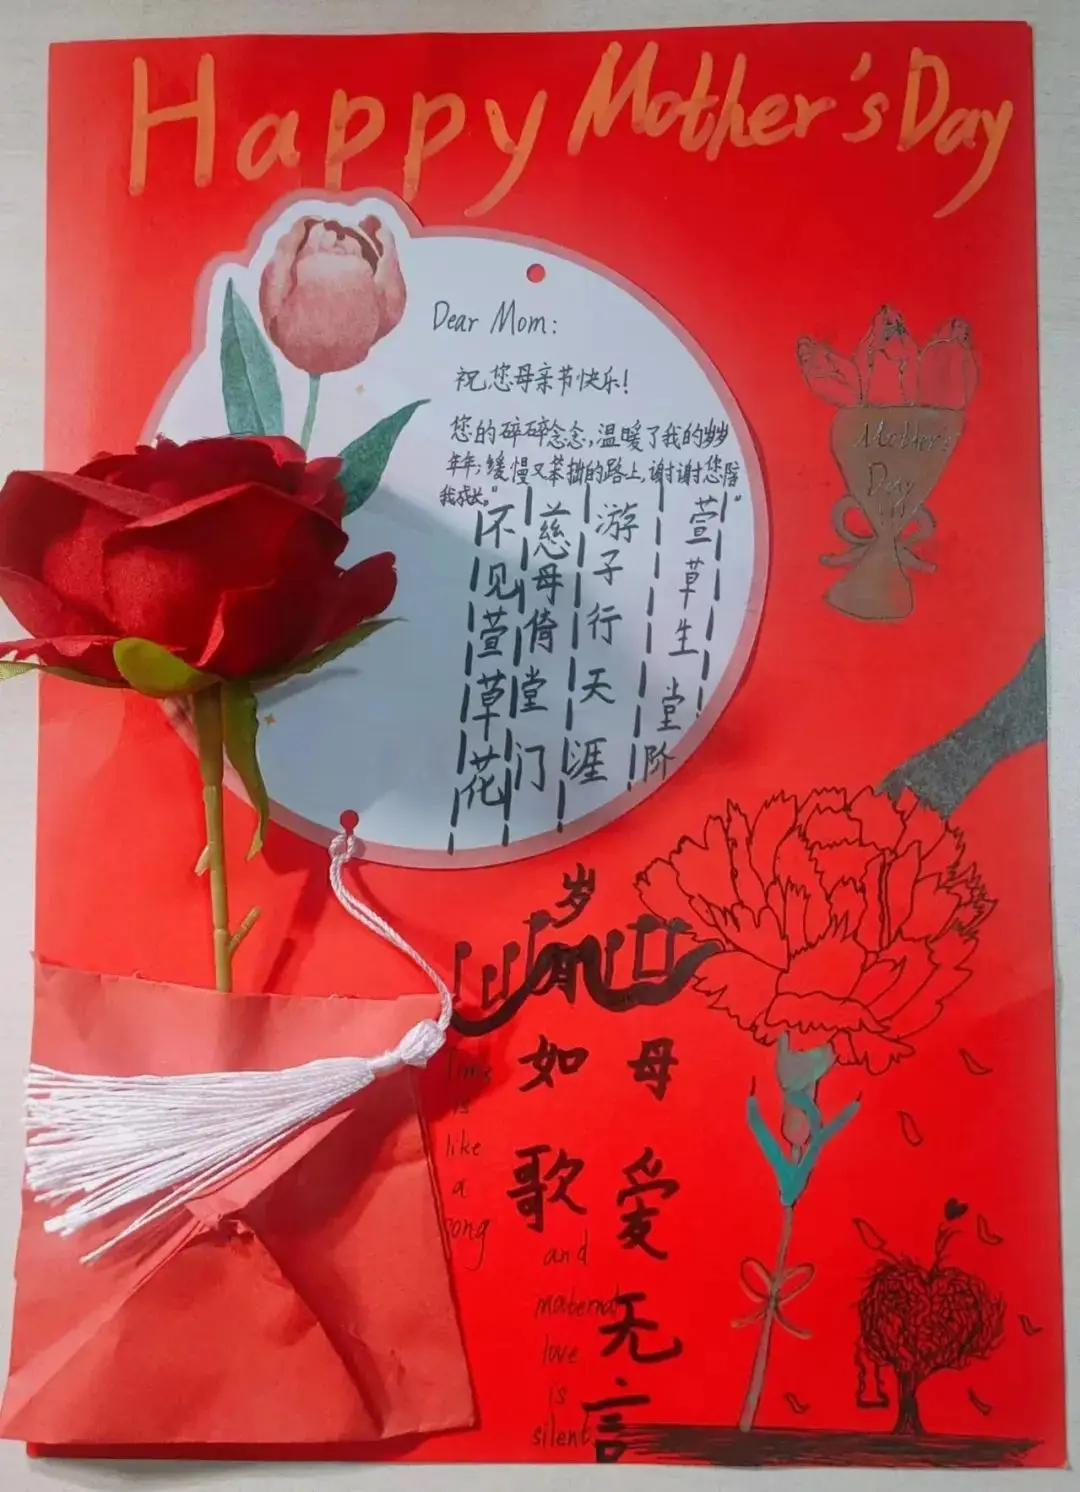 Happy Mother's Day
Dear Mom:
祝您母亲节快乐!
您的碎碎念念,温暖了我的岁岁
年年;缓慢又笨拙的路上,谢谢您陪
我成长。"
萱草生堂阶
游子行天涯
慈母倚堂门
不见萱草花
Mother's
Day
岁
如歌
母爱无言
Time
is
like
a
song
and
maternal
love
is
silent